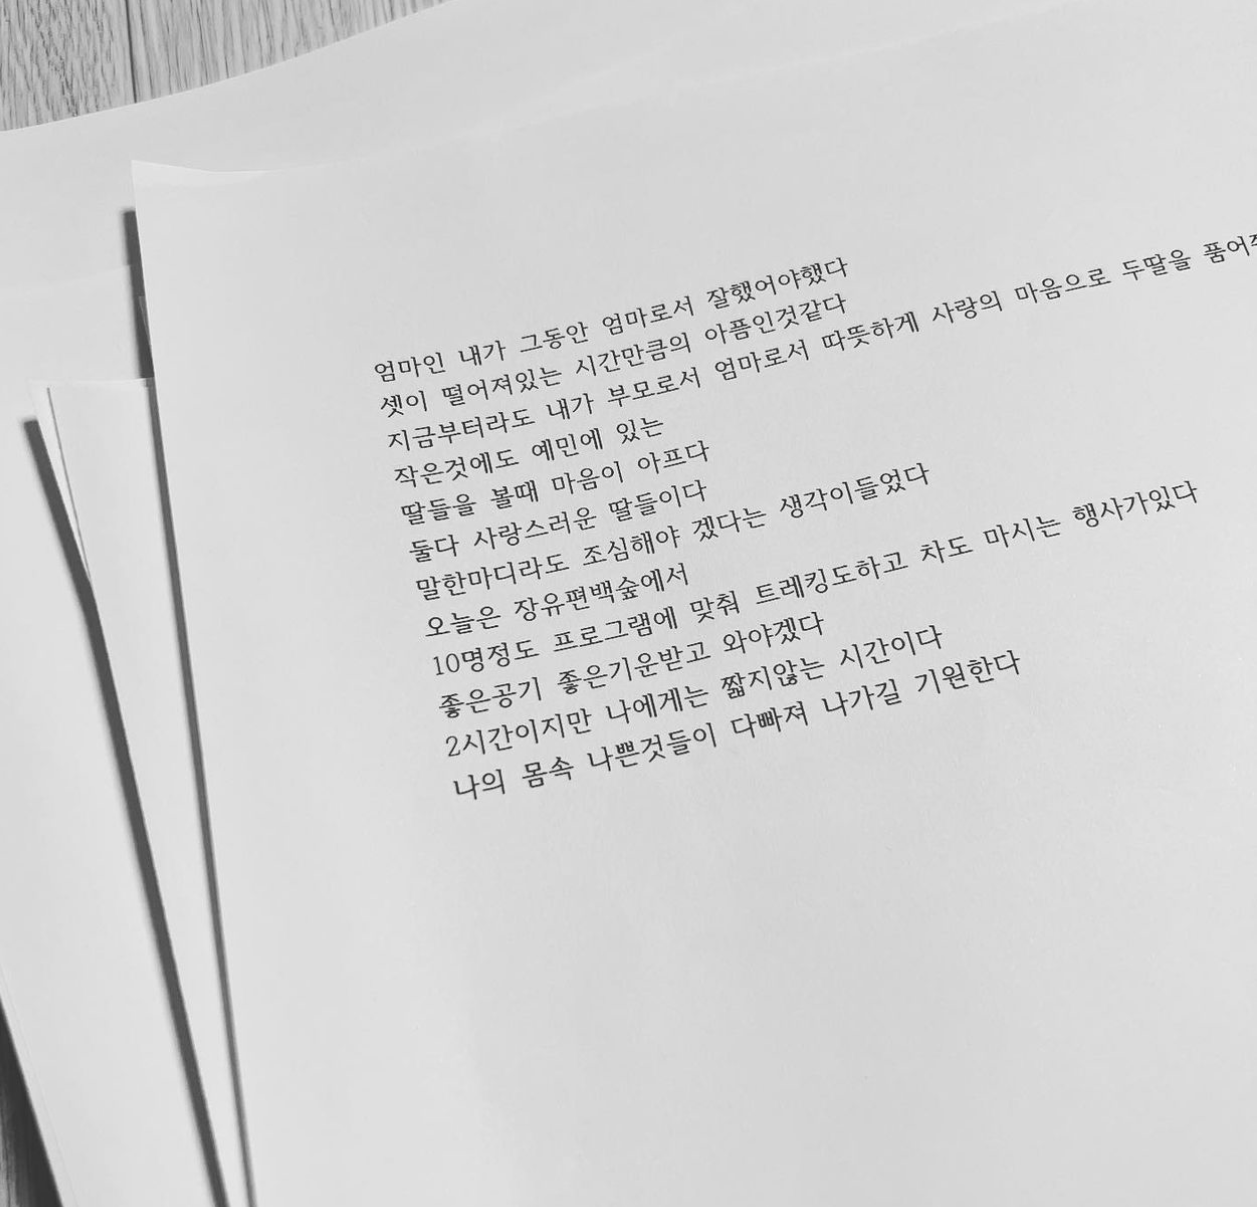 엄마인 내가 그동안 엄마로서 잘했어야했다
셋이 떨어져있는 시간만큼의 아픔인것같다
지금부터라도 내가 부모로서 엄마로서 따뜻하게 사랑의 마음으로 두딸을
작은것에도 예민에 있는
딸들을 볼때 마음이 아프다
둘다 사랑스러운 딸들이다
말한마디라도 조심해야 겠다는 생각이들었다
오늘은 장유편백숲에서
10명정도 프로그램에 맞춰 트레킹도하고 차도 마시는 행사가있다
좋은공기 좋은기운받고 와야겠다
2시간이지만 나에게는 짧지않는 시간이다
나의 몸속 나쁜것들이 다빠져 나가길 기원한다